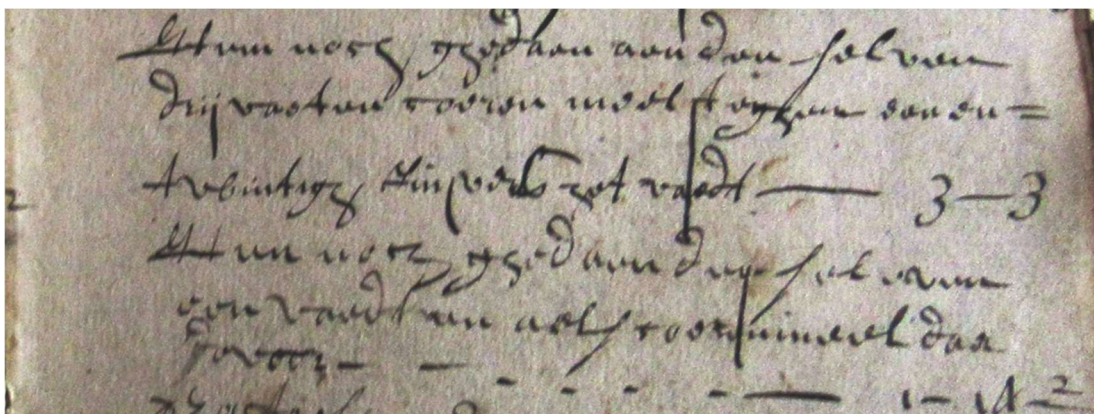 Item noch ghedaen aen den selven
drij vaeten coeren meel teghen een en=
twintich stuijvers het vaedt — 3–3
Item noch ghedaen den selven
een vaedt en aelf coeren meel daer
voor - -